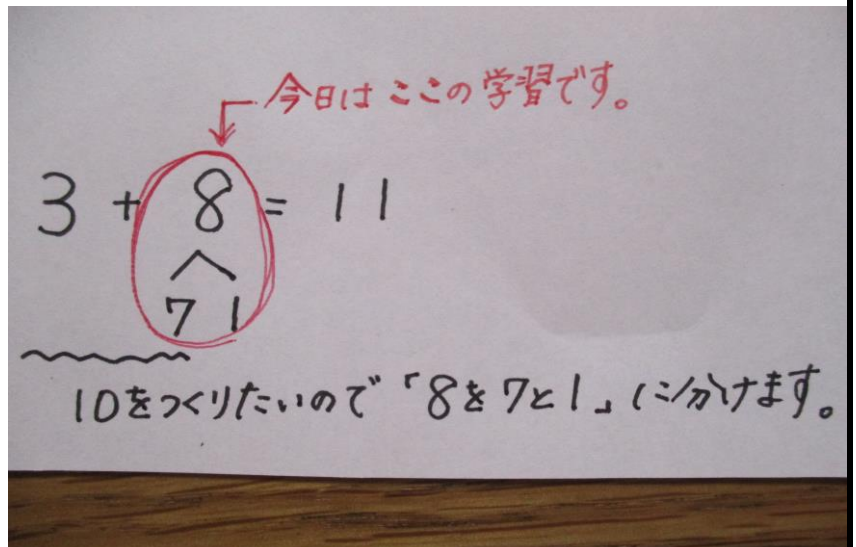 今日は ここの 学習です。
3 + 8 = 11
7 1
10をつくりたいので「8を7と1」に分けます。